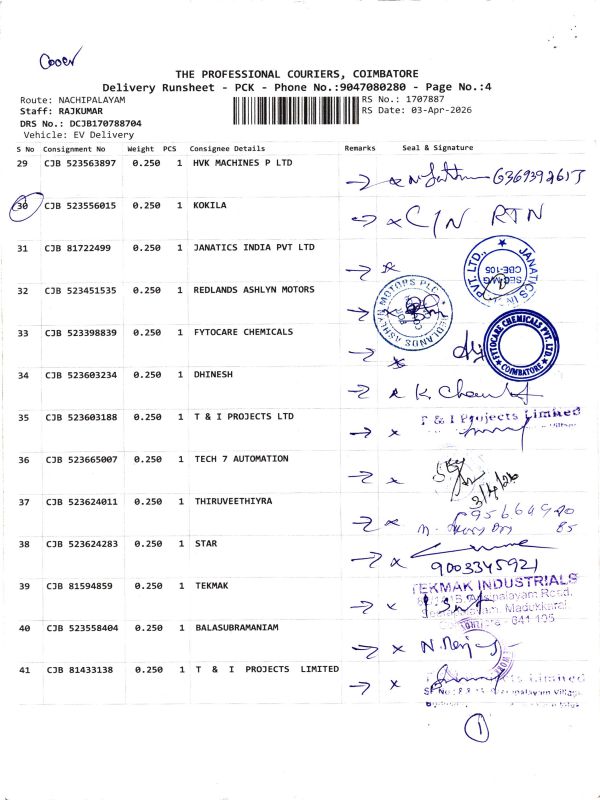 Cover
THE PROFESSIONAL COURIERS, COIMBATORE
Delivery Runsheet - PCK - Phone No.:9047080280 - Page No.:4
Route: NACHIPALAYAM
RS No.: 1707887
Staff: RAJKUMAR
RS Date: 03-Apr-2026
DRS No.: DCJB170788704
Vehicle: EV Delivery
S No Consignment No Weight PCS Consignee Details Remarks Seal & Signature
29 CJB 523563897 0.250 1 HVK MACHINES P LTD
30 CJB 523556015 0.250 1 KOKILA C/N RTN
31 CJB 81722499 0.250 1 JANATICS INDIA PVT LTD
JANATICS PVT. LTD. CBE-105
32 CJB 523451535 0.250 1 REDLANDS ASHLYN MOTORS
REDLANDS ASHLYN MOTORS PLC
33 CJB 523398839 0.250 1 FYTOCARE CHEMICALS
FYTOCARE CHEMICALS PVT. LTD. COIMBATORE
34 CJB 523603234 0.250 1 DHINESH
35 CJB 523603188 0.250 1 T & I PROJECTS LTD
T & I Projects Limited
36 CJB 523665007 0.250 1 TECH 7 AUTOMATION
3/4/26
37 CJB 523624011 0.250 1 THIRUVEETHIYRA
38 CJB 523624283 0.250 1 STAR
9003345921
39 CJB 81594859 0.250 1 TEKMAK
TEKMAK INDUSTRIALS
40 CJB 523558404 0.250 1 BALASUBRAMANIAM
41 CJB 81433138 0.250 1 T & I PROJECTS LIMITED
1